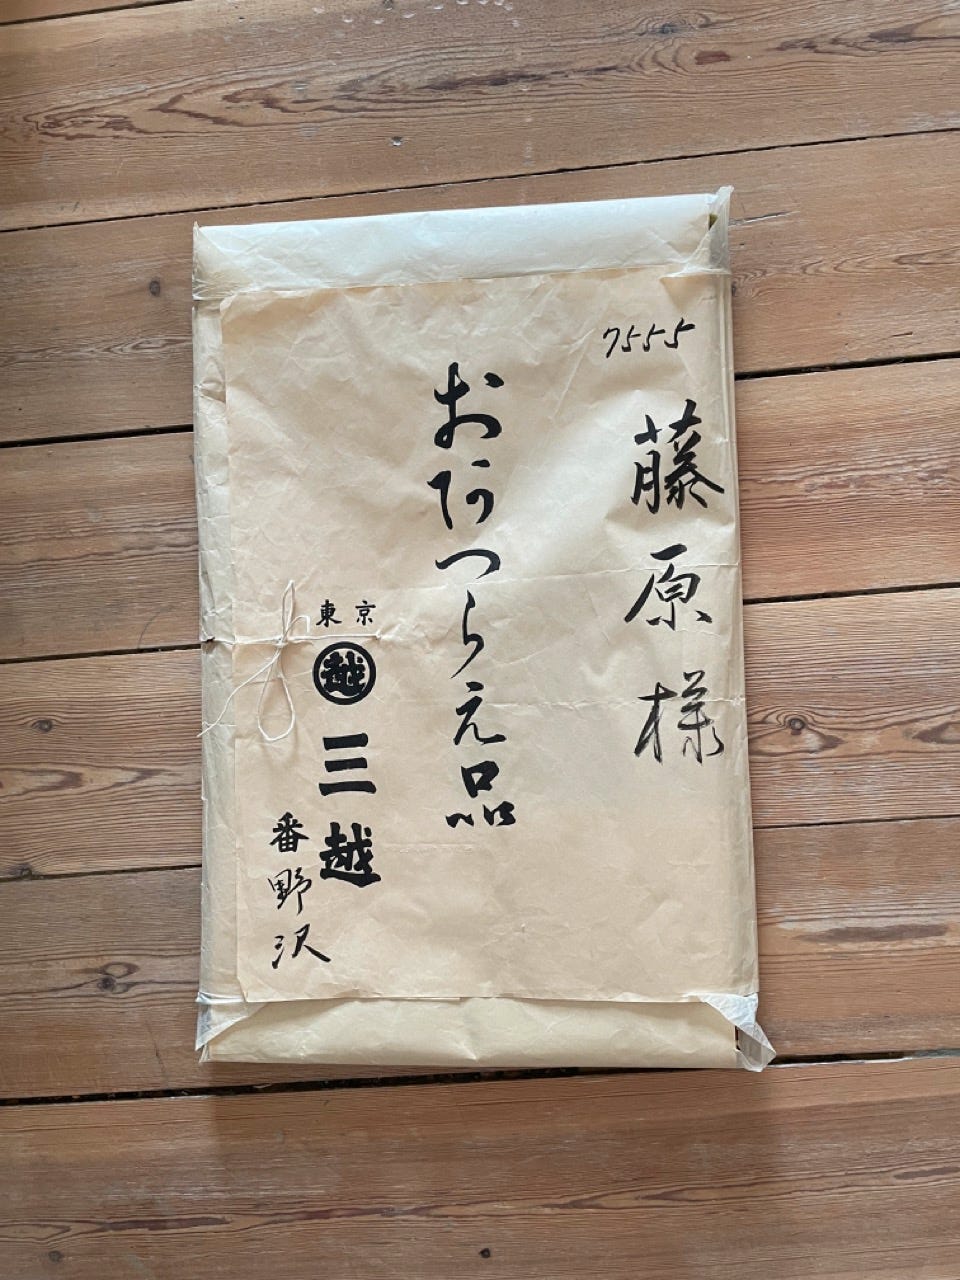 7555
藤原様
おあつらえ品
東京
越
三越
番野沢